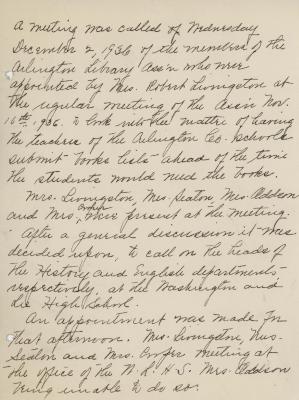 A meeting was called of Wednesday
December 2, 1936 of the members of the
Arlington Library Ass'n who were
appointed by Mrs. Robert Livingston at
the regular meeting of the Ass'n Nov.
10th, 1936. to look into the mattre of having
the teachers of the Arlington Co. Schools
submit books lists ahead of the time
the students would need the books.
Mrs. Livingston, Mrs. Seaton, Mrs. Addson
and Mrs. were present at the meeting.
After a general discussion it was
decided upon, to call on the heads of
the History and English departments
respectively, at the Washington and
Lee High School.
An appointment was made for
that afternoon. Mrs. Livingston, Mrs.
Seaton and Mrs. meeting at
the office of the W. & L. H. S. Mrs. Addson
being unable to do so.